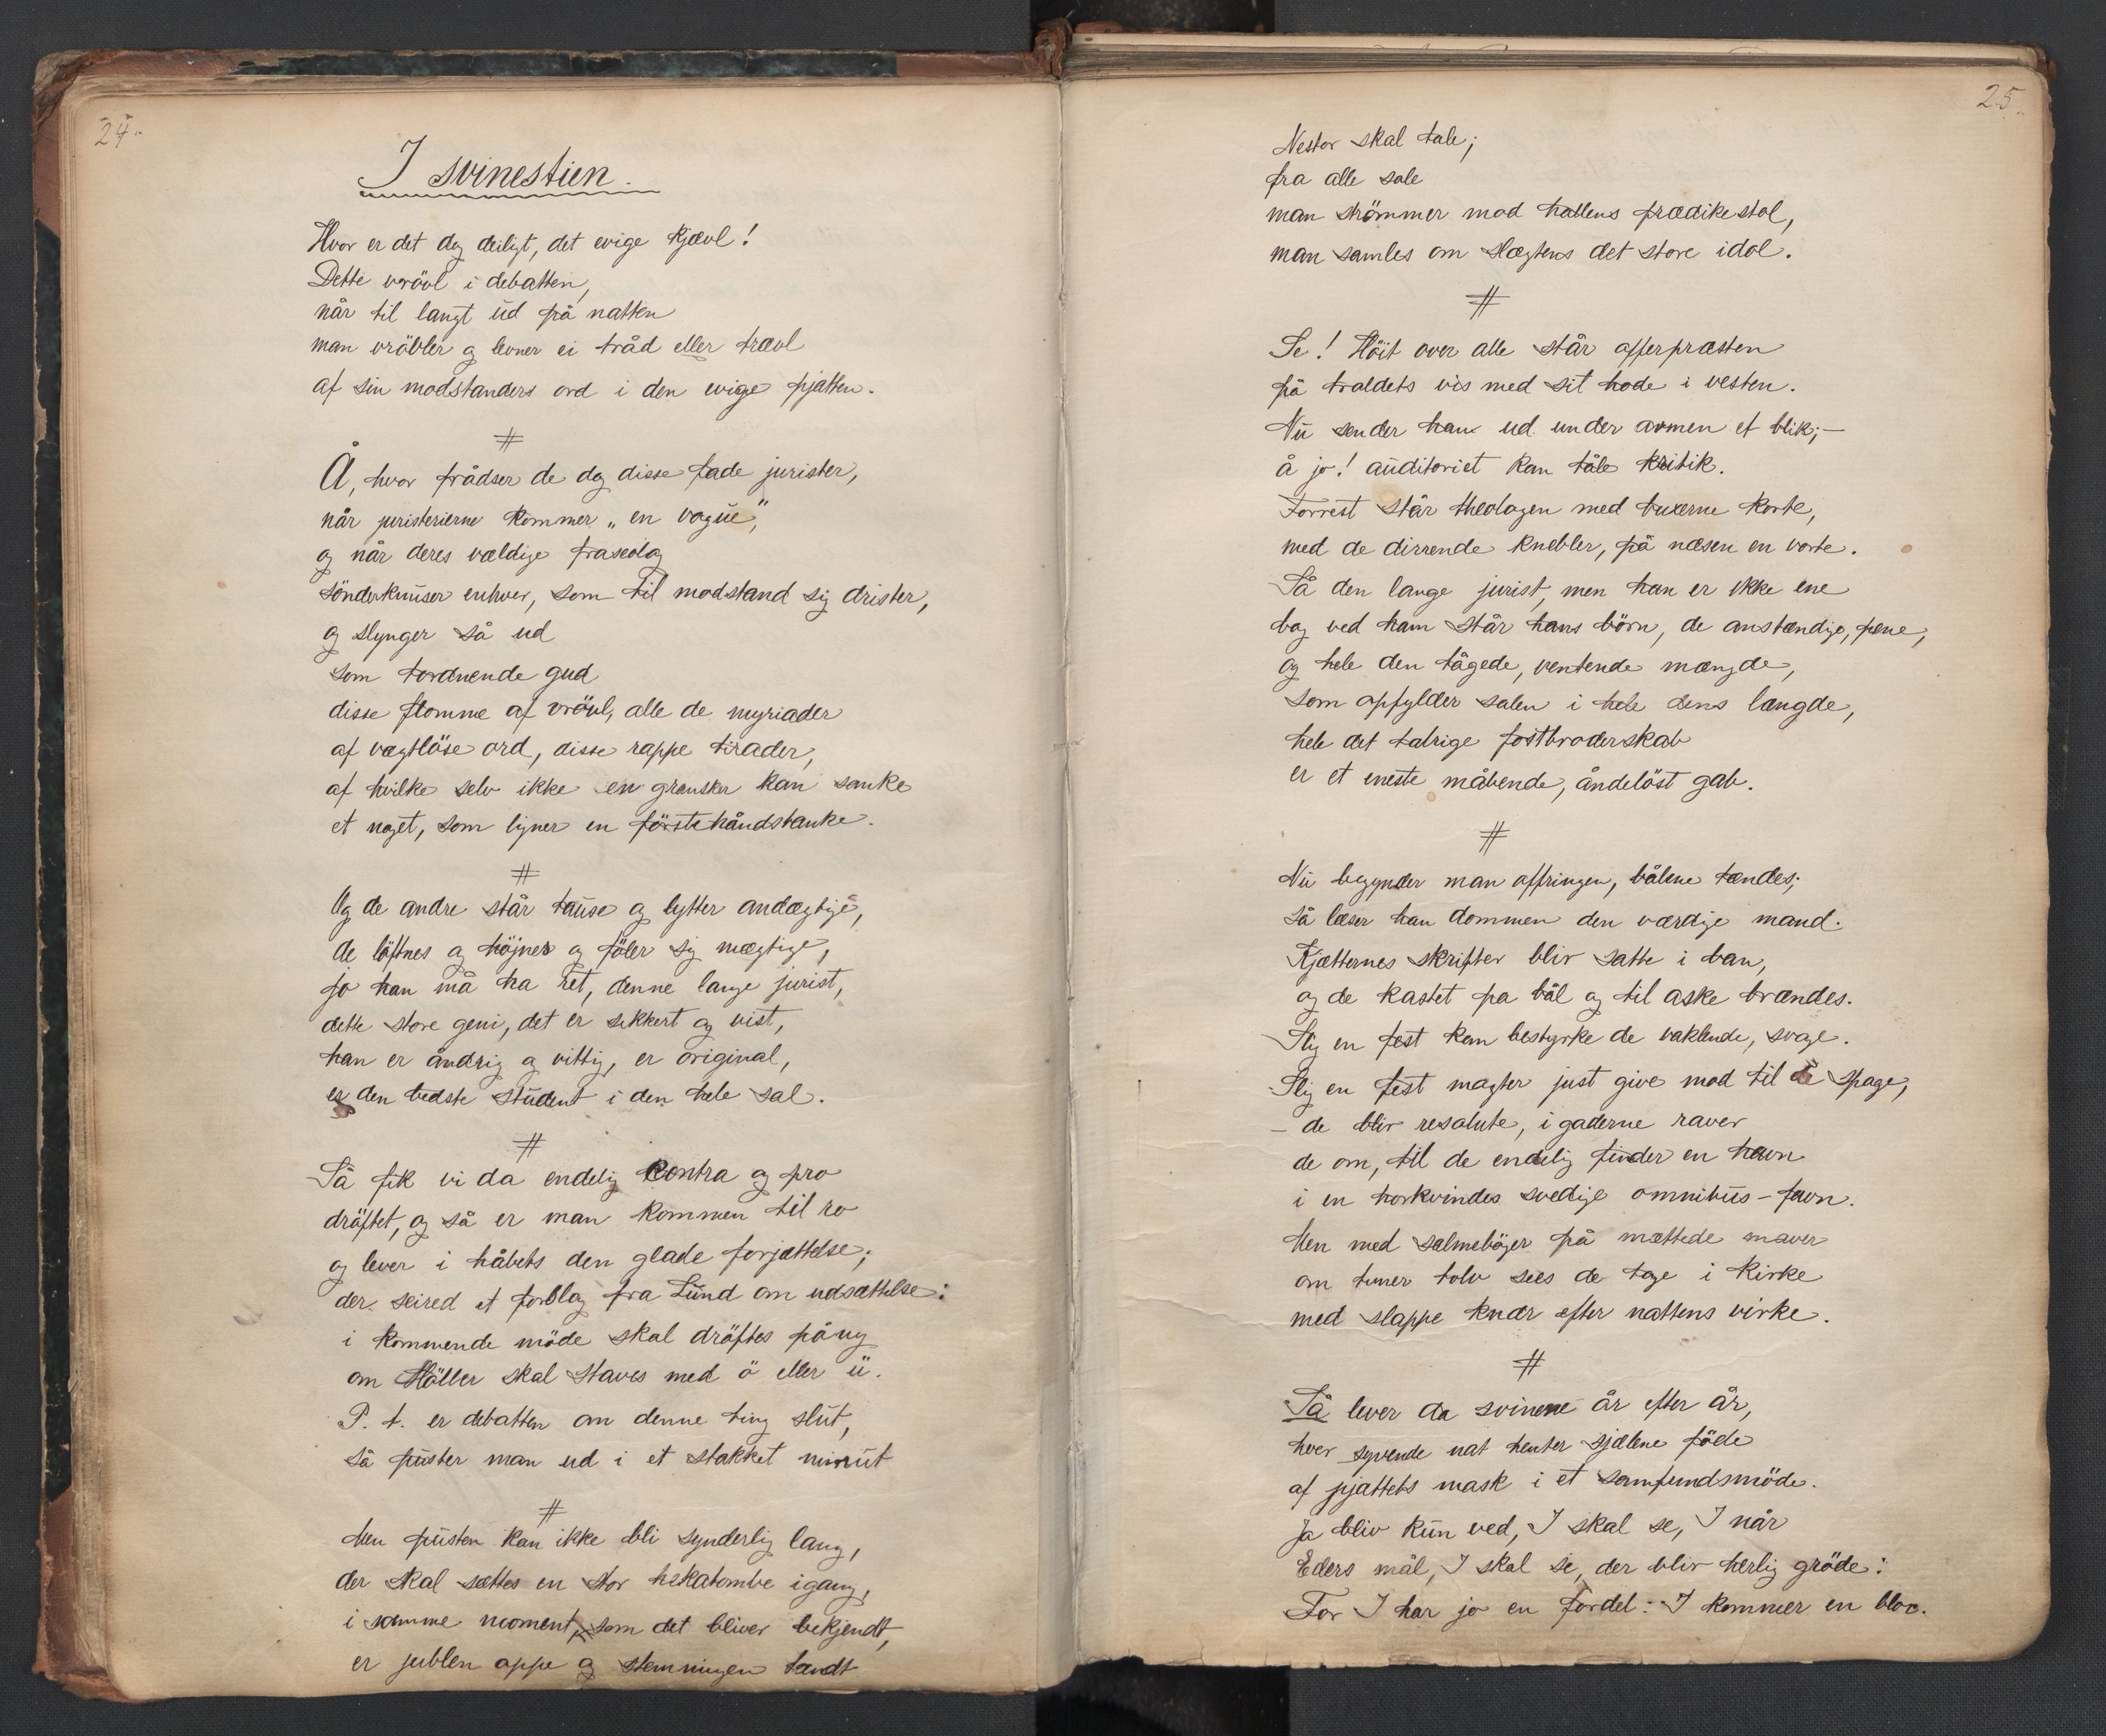 24.
I svinestien.
Hvor er det dog deiligt, det evige kjævl!
Dette vrövl i debatten,
når til langt ud på natten
man vröbler og levner ei tråd eller trævl
af sin modstanders ord i den evige pjatten.
#
Å, hvor frådser de dog disse fade jurister,
når juristerierne kommer „en vogue",
og når deres vældige fraseolog
sönderknuser enhver, som til modstand sig drister,
og slynger så ud
som tordnende gud
disse flomme af vrövl, alle de myriader
af vægtlöse ord, disse rappe tirader,
af hvilke selv ikke en gransker kan sanke
et noget, som ligner en förstehåndstanke.
#
Og de andre står tause og lytter andægtige,
de löftnes og höjnes og föler sig mægtige,
jo han må ha ret, denne lange jurist,
dette store geni, det er sikkert og vist,
han er åndrig og vittig, er original,
er den bedste student i den hele sal.
#
Så fik vi da endelig Contra og pro
dröftet, og så er man kommen til ro
og lever i håbets den glade forjættelse;
der seired et forslag fra Lund om udsættelse:
i kommende möde skal dröftes påny
om Höller skal staves med ö eller ü.
P. t. er debatten om denne ting slut,
så puster man ud i et stakket minut
#
Men pusten kan ikke bli synderlig lang,
der skal sættes en stor hekatombe igang,
i samme moment, som det bliver bekjendt,
er jublen oppe og stemningen tændt
25.
Nestor skal tale;
fra alle sale
man strömmer mod hallens prædikestol,
man samles om slægtens det store idol.
#
Se! Höit over alle står offerpræsten
på troldets vis med sit hode i vesten.
Nu sender han ud under armen et blik; —
å jo! auditoriet kan tåle kritik.
Forrest står theologen med buxerne korte,
med de dirrende knebler, på næsen en vorte.
Så den lange jurist, men han er ikke ene
bag ved ham står hans börn, de anstændige, pene,
og hele den tågede, ventende mængde,
som opfylder salen i hele dens længde,
hele det talrige fostbroderskab
er et eneste måbende, åndelöst gab.
#
Nu begynder man offringen, bålene tændes;
så læser han dommen den værdige mand.
Kjætternes skrifter blir satte i ban,
og de kastet pa bål og til aske brændes.
Slig en fest kan bestyrke de vaklende, svage.
Slig en fest magter just give mod til de spage,
— de blir resolute, i gaderne raver
de om, til de endelig finder en havn
i en horkvindes svedige omnibus-favn.
Men med salmeböger på mættede maver
om timer tolv sees de tage i kirke
med slappe knær efter nattens virke.
#
Så lever da svinene år efter år,
hver syvende nat henter sjælene föde
af pjattets mask i et samfundsmöde.
Ja bliv kun ved, I skal se, I når
Eders mål, I skal se, der blir herlig gröde:
For I har jo en fordel: I kommer en bloc.